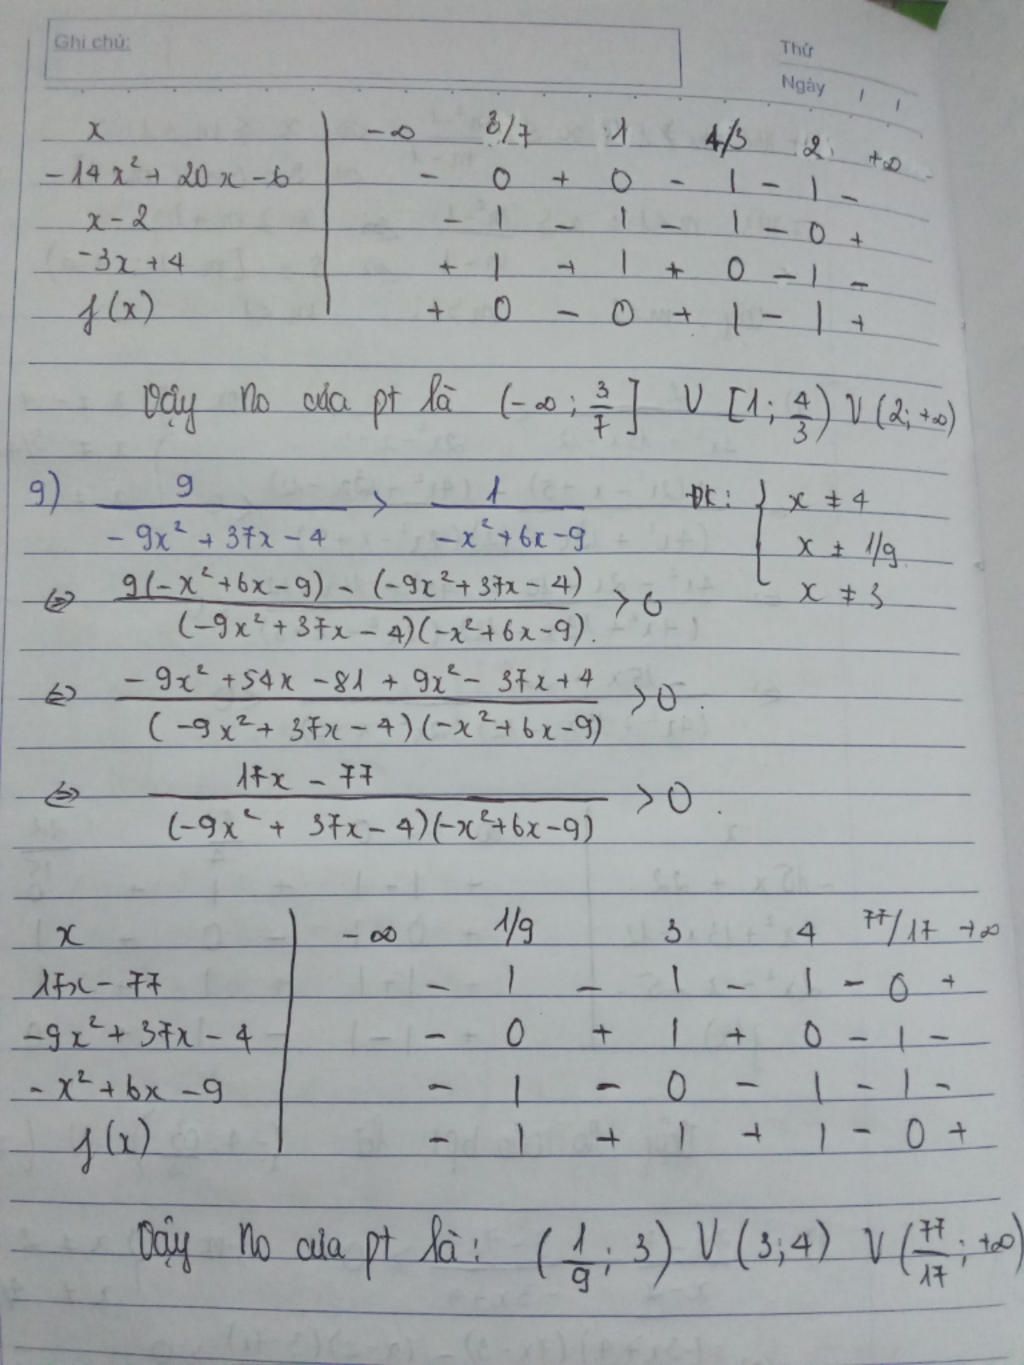 Ghi chú:
Thứ
Ngày / /
x | -∞ 3/7 1 4/3 2 +∞
-14x² + 20x - 6 | - 0 + 0 - | - | -
x - 2 | - | - | - | - 0 +
-3x + 4 | + | + | + 0 - | -
f(x) | + 0 - 0 + | - | +
Vậy No của pt là (-∞; 3/7] ∪ [1; 4/3) ∪ (2; +∞)
9) 9/(-9x² + 37x - 4) > 1/(-x² + 6x - 9) ĐK: { x ≠ 4
x ≠ 1/9
x ≠ 3
⇔ (9(-x² + 6x - 9) - (-9x² + 37x - 4))/((-9x² + 37x - 4)(-x² + 6x - 9)) > 0
⇔ (-9x² + 54x - 81 + 9x² - 37x + 4)/((-9x² + 37x - 4)(-x² + 6x - 9)) > 0
⇔ (17x - 77)/((-9x² + 37x - 4)(-x² + 6x - 9)) > 0
x | -∞ 1/9 3 4 77/17 +∞
17x - 77 | - | - | - | - 0 +
-9x² + 37x - 4 | - 0 + | + 0 - | -
-x² + 6x - 9 | - | - 0 - | - | -
f(x) | - | + | + | - 0 +
Vậy No của pt là: (1/9; 3) ∪ (3; 4) ∪ (77/17; +∞)